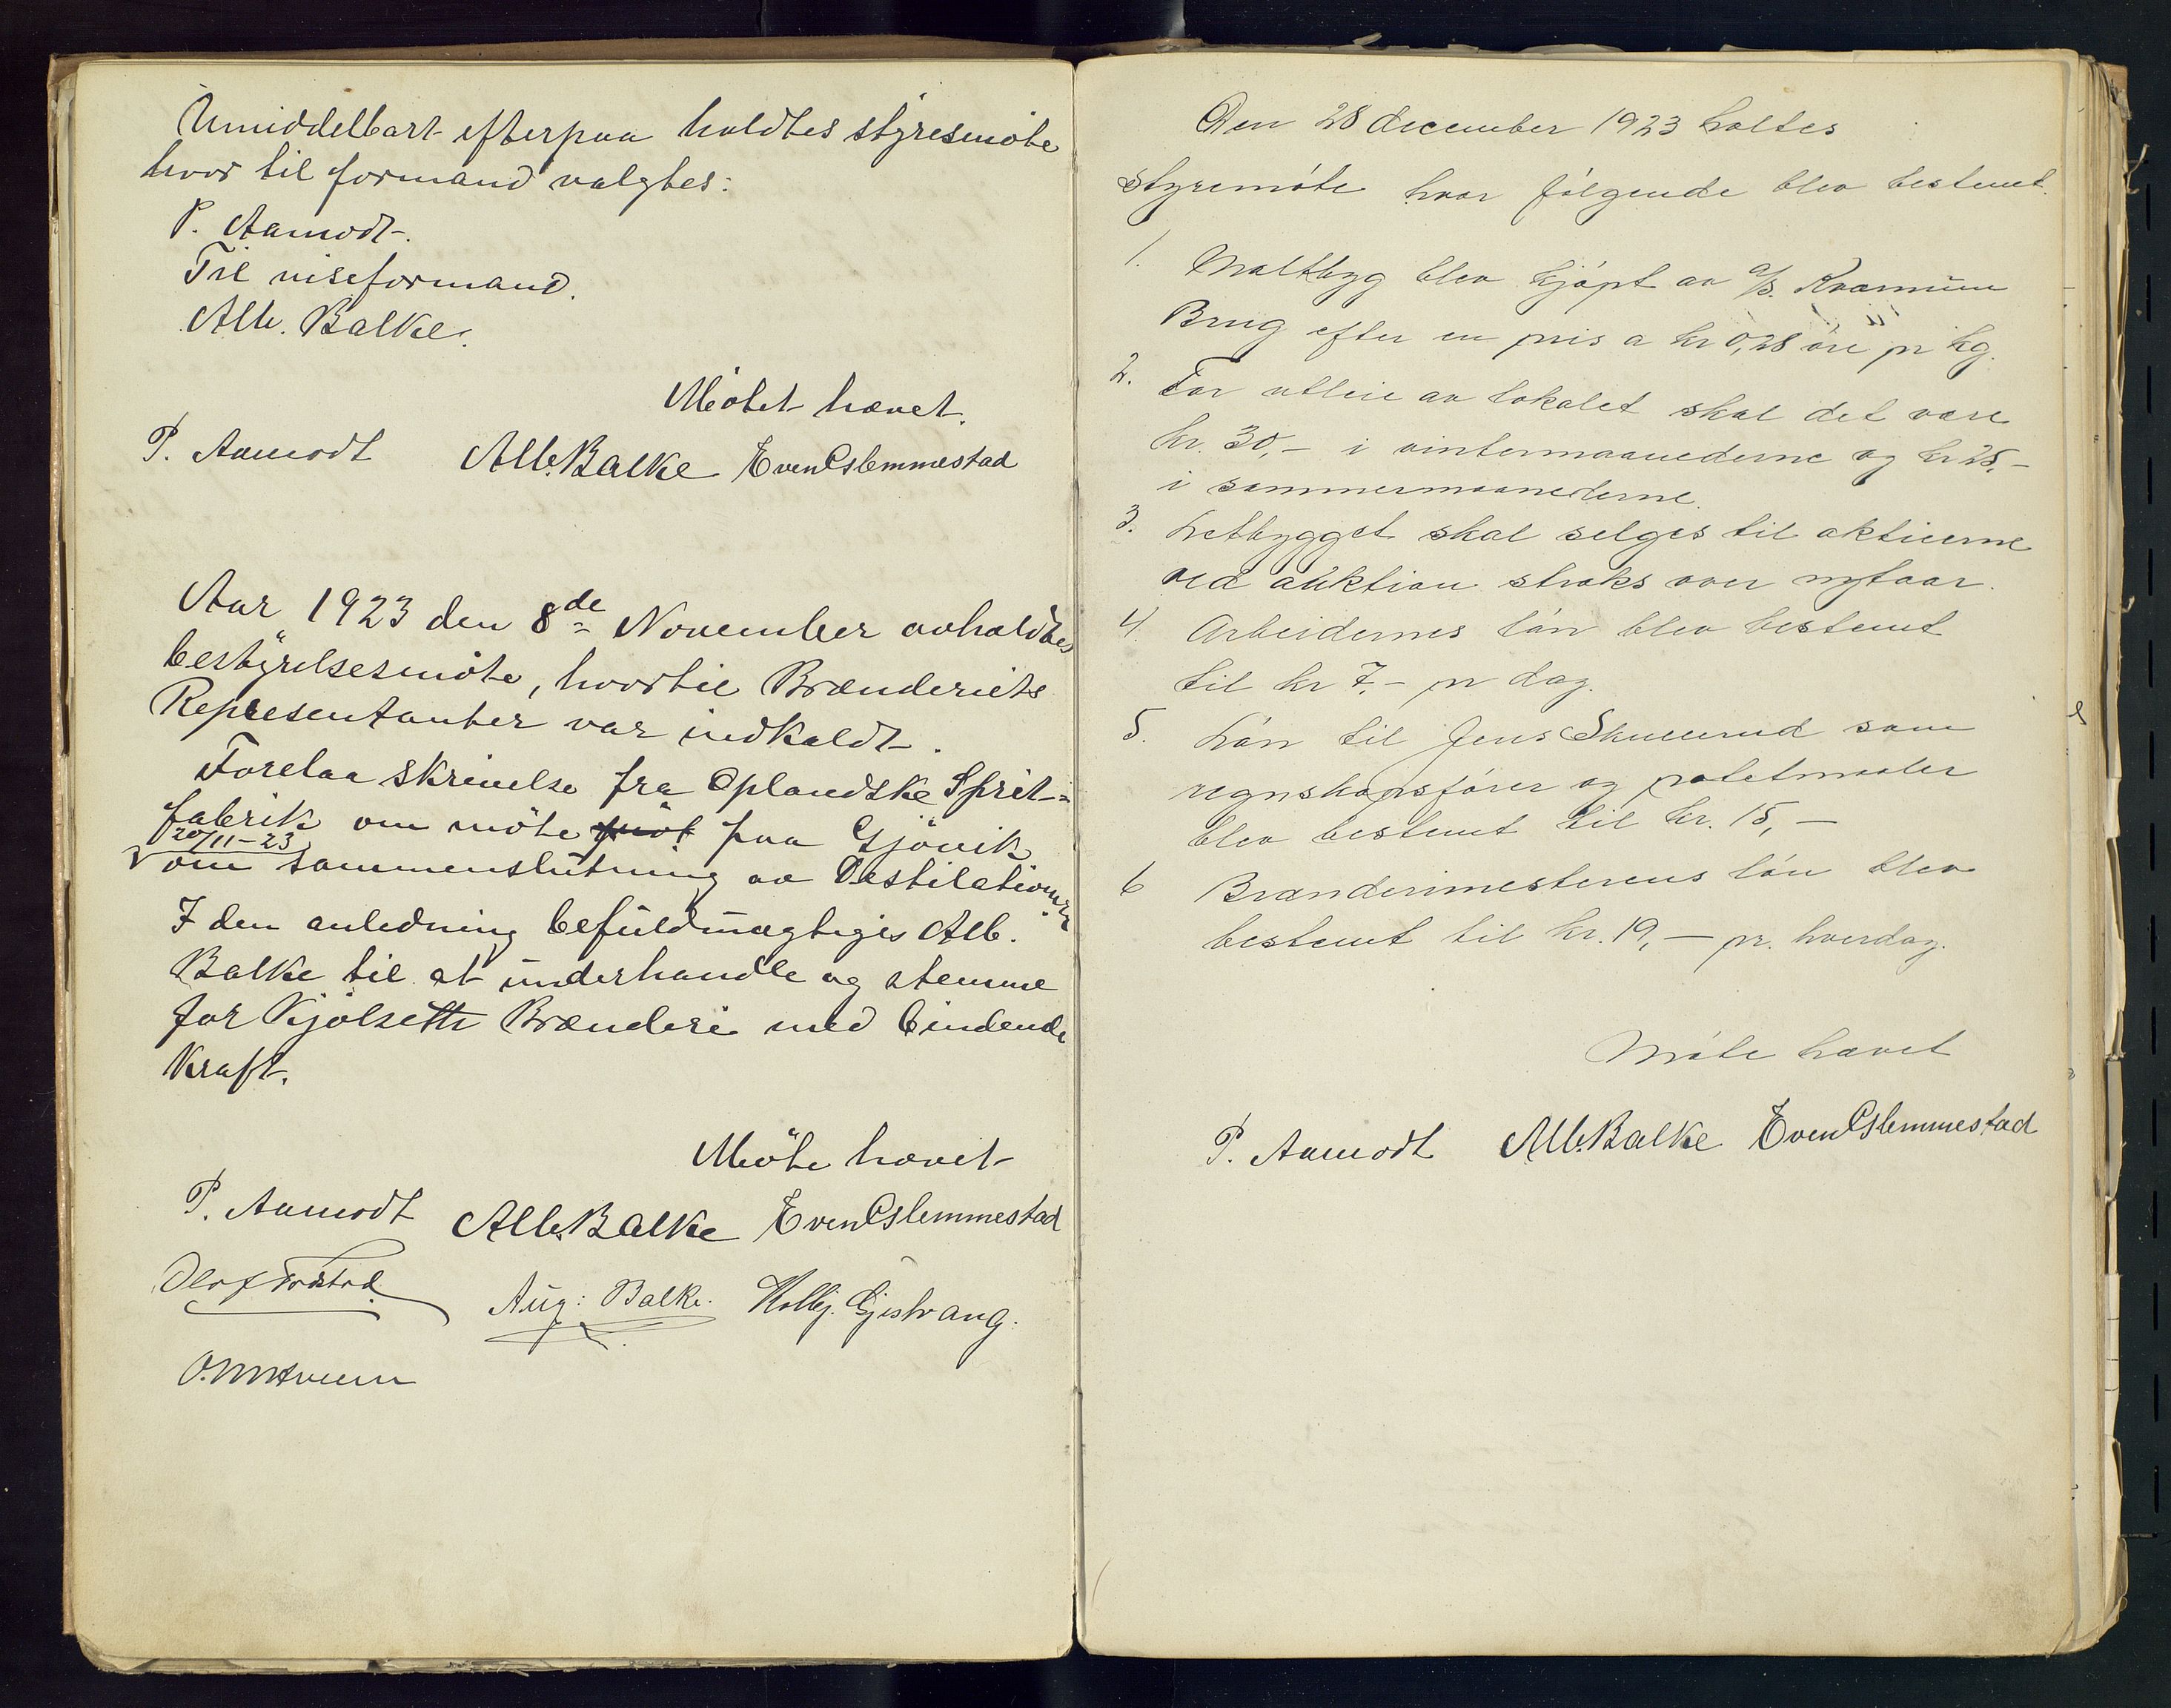 Umiddelbart efterpaa holdtes styresmöte
hvor til formand valgtes:
P. Aamodt.
Til viseformand.
Alb. Balke.
Mötet hævet.
P. Aamodt Alb. Balke Even Eslemmestad
Aar 1923 den 8de November avholdtes
bestyrelsesmöte, hvortil Brænderiets
Representanter var indkaldt.
Forelaa skrivelse fra Oplandske Sprit-
fabrik om möte paa Gjövik
20/11-23
om sammenslutning av Destilationen.
I den anledning befuldmægtiges Alb.
Balke til at underhandle og stemme
for Kjölseth Brænderi med bindende
Kraft.
Möte hævet
P. Aamodt Alb. Balke Even Eslemmestad
Olaf
Aug: Balke. Gjestvang.
Den 28 december 1923 holtes
Styremöte hvor fölgende blev bestemt.
1. Maltbyg blev kjöpt av A/S. Kvæmum
Brug efter en pris a kr 0,28 öre pr kg.
2. For utleie av lokalet skal det være
kr. 30,- i vintermaanederne og kr 25,-
i sommermaanederne.
3. Letbygget skal selges til aktierne
ved auktion straks over nytaar.
4. Arbeidernes lön blev bestemt
til kr 7,- pr dag.
5. Lön til Jens Skullerud som
regnskapsförer og potetmaaler
blev bestemt til kr. 15,-
6 Brænderimesterens lön blev
bestemt til kr. 19,- pr. hverdag.
Möte hævet
P. Aamodt Alb. Balke Even Eslemmestad